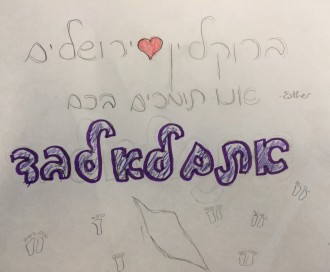 ברוקלין ❤ ירושלים
אנו תומכים בכם
-Esther
אתם לא לבד